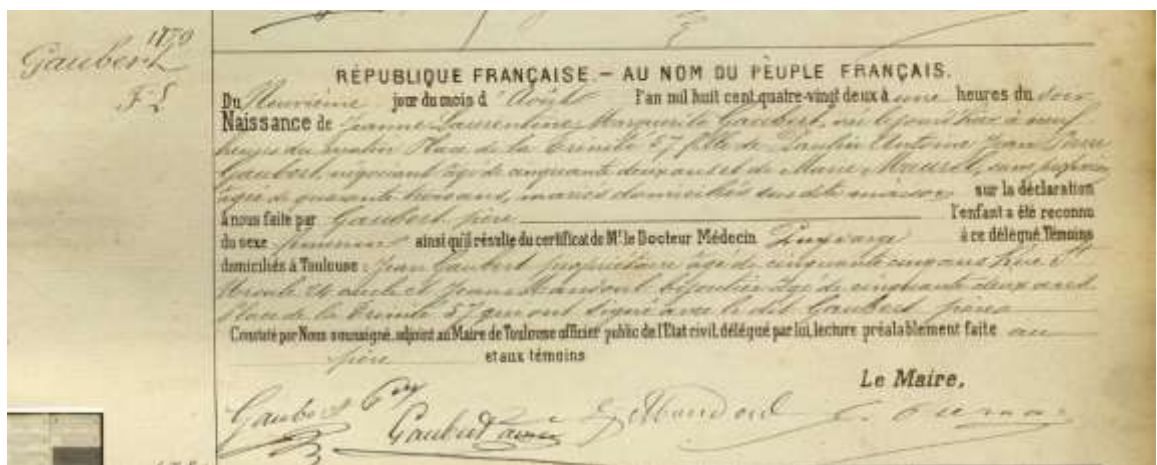 1879
Gaubert
F L
RÉPUBLIQUE FRANÇAISE. — AU NOM DU PEUPLE FRANÇAIS.
Du Neuvième jour du mois d'Août l'an mil huit cent quatre-vingt deux à une heures du soir
Naissance de Jeanne Laurentine Marguerite Gaubert, née le jour hier à neuf
heures du matin Place de la Trinité 57 fille de Antoine Jean Pierre
Gaubert, négociant âgé de cinquante deux ans et de Marie Mauret, sans profession
âgée de quarante trois ans, mariés domiciliés sus dite maison sur la déclaration
à nous faite par Gaubert père l'enfant a été reconnu
du sexe féminin ainsi qu'il résulte du certificat de Mr le Docteur Médecin à ce délégué. Témoins
domiciliés à Toulouse : Jean Gaubert propriétaire âgé de cinquante cinq ans Rue
24 oncle et Jean bijoutier âgé de cinquante deux ans
Place de la Trinité 57 qui ont signé avec le dit Gaubert père
Constaté par Nous soussigné, adjoint au Maire de Toulouse officier public de l'Etat civil, délégué par lui, lecture préalablement faite au
père et aux témoins
Le Maire,
Gaubert Gaubert ainé